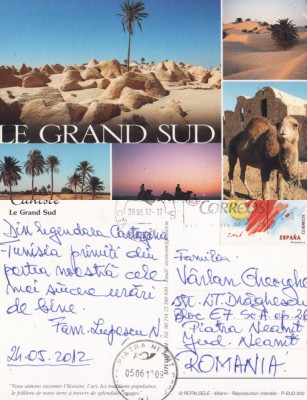 LE GRAND SUD
Tunisie
Le Grand Sud
CORREOS
ESPAÑA
Din legendara Cartagina
Tunisia primiți din
partea noastră cele
mai sincere urări
de bine.
Fam. Lupescu N
24-05-2012
Familia
Vartan Gheorghe
Str. Lt. Drăghescu
Bloc E7 Sc A ap. 26
Piatra Neamț
Jud. Neamț
ROMANIA
PIATRA-NEAMT
05.06.1
"Nous aimons raconter l'histoire, l'art, les traditions populaires,
le folklore de notre terre à travers de splendides images"
© ROTALSELE - Milano - Reproduction interdite - P-SUD